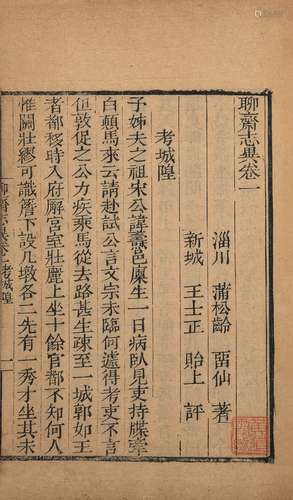 聊齋志異卷一
淄川 蒲松齡 畱仙 著
新城 王士正 貽上 評
考城隍
予姊夫之祖宋公諱燾邑廩生一日病臥見吏持牒牽
白顛馬來云請赴試公言文宗未臨何遽得考吏不言
但敦促之公力疾乘馬從去路甚生疎至一城郭如王
者都移時入府廨宮室壯麗上坐十餘官都不知何人
惟關壯繆可識簷下設几墩各二先有一秀才坐其末
聊齋志異卷一 考城隍 一